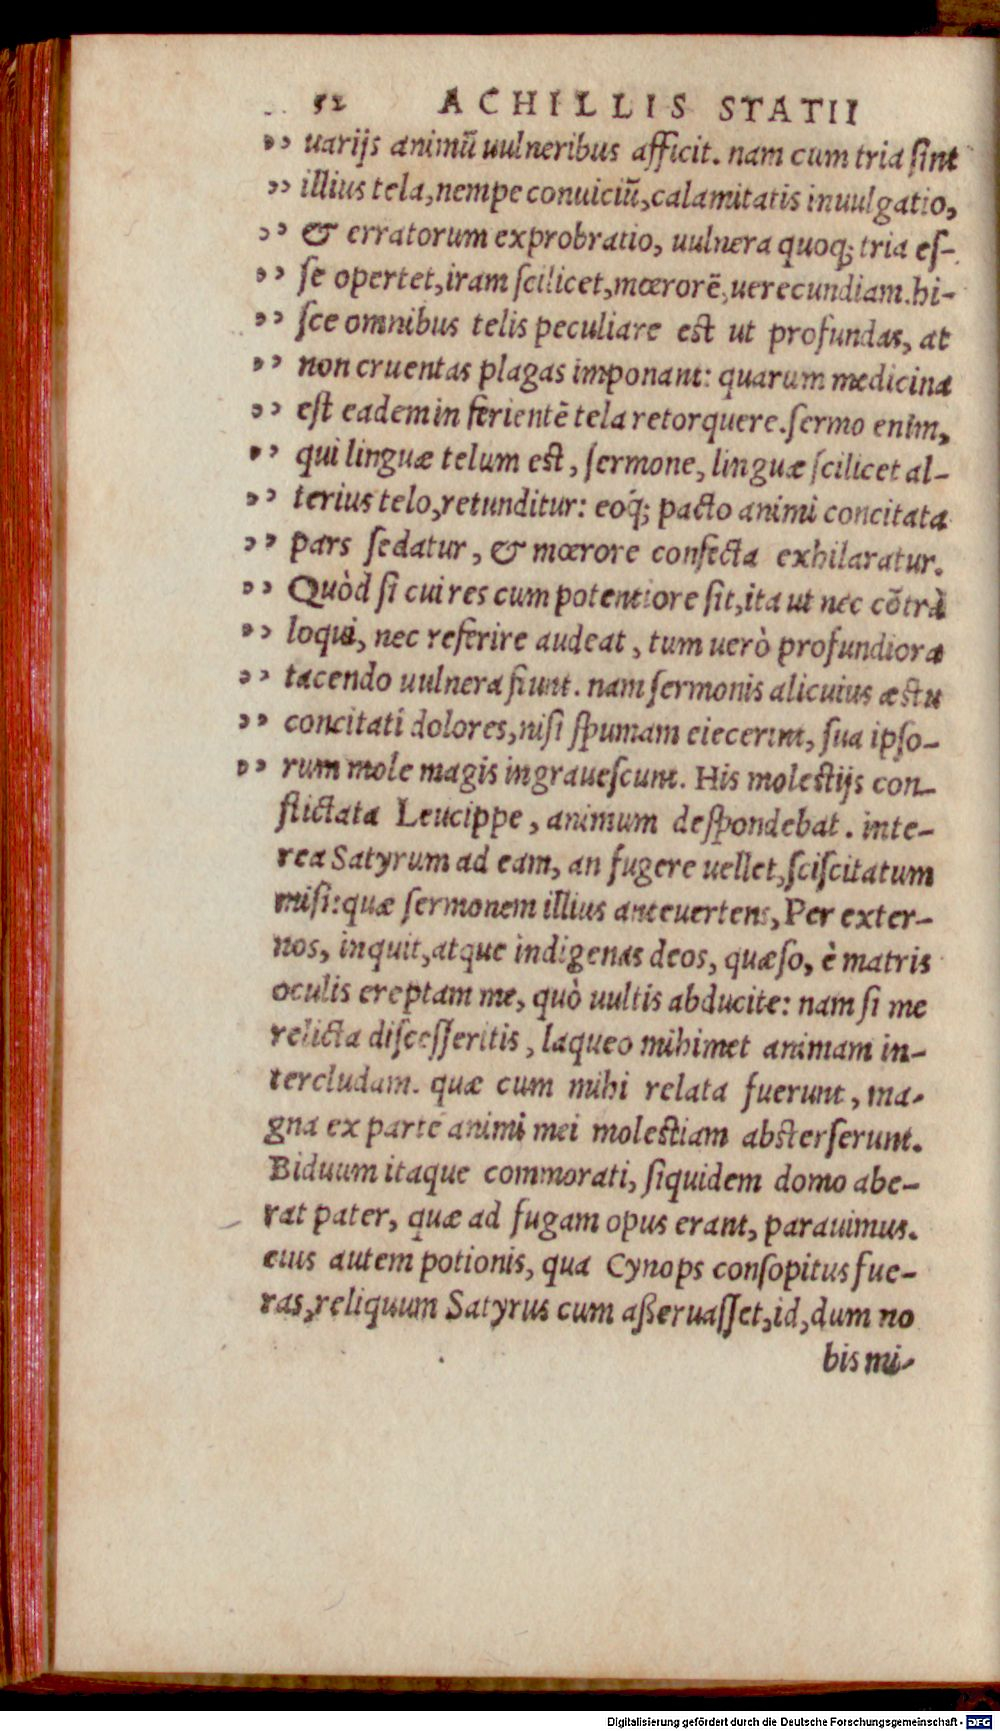 52 ACHILLIS STATII
„ uarijs animū uulneribus afficit. nam cum tria ſint
„ illius tela, nempe conuiciū, calamitatis inuulgatio,
„ & erratorum exprobratio, uulnera quoq; tria eſ-
„ ſe opertet, iram ſcilicet, mœrorē, uerecundiam. hi-
„ ſce omnibus telis peculiare est ut profundas, at
„ non cruentas plagas imponant: quarum medicina
„ est eadem in ferientē tela retorquere. ſermo enim,
„ qui linguæ telum est, ſermone, linguæ ſcilicet al-
„ terius telo, retunditur: eoq́; pacto animi concitata
„ pars ſedatur, & mœrore confecta exhilaratur.
„ Quòd ſi cui res cum potentiore ſit, ita ut nec cōtrà
„ loqui, nec referire audeat, tum uerò profundiora
„ tacendo uulnera fiunt. nam ſermonis alicuius æstu
„ concitati dolores, niſi ſpumam eiecerint, ſua ipſo-
„ rum mole magis ingraueſcunt. His molestijs con-
flictata Leucippe, animum deſpondebat. inte-
rea Satyrum ad eam, an fugere uellet, ſciſcitatum
miſi: quæ ſermonem illius anteuertens, Per exter-
nos, inquit, atque indigenas deos, quæſo, è matris
oculis ereptam me, quò uultis abducite: nam ſi me
relicta diſceſſeritis, laqueo mihimet animam in-
tercludam. quæ cum mihi relata fuerunt, ma-
gna ex parte animi mei molestiam absterſerunt.
Biduum itaque commorati, ſiquidem domo abe-
rat pater, quæ ad fugam opus erant, parauimus.
eius autem potionis, qua Cynops conſopitus fue-
rat, reliquum Satyrus cum aßeruaſſet, id, dum no
bis mi-
Digitalisierung gefördert durch die Deutsche Forschungsgemeinschaft - DFG